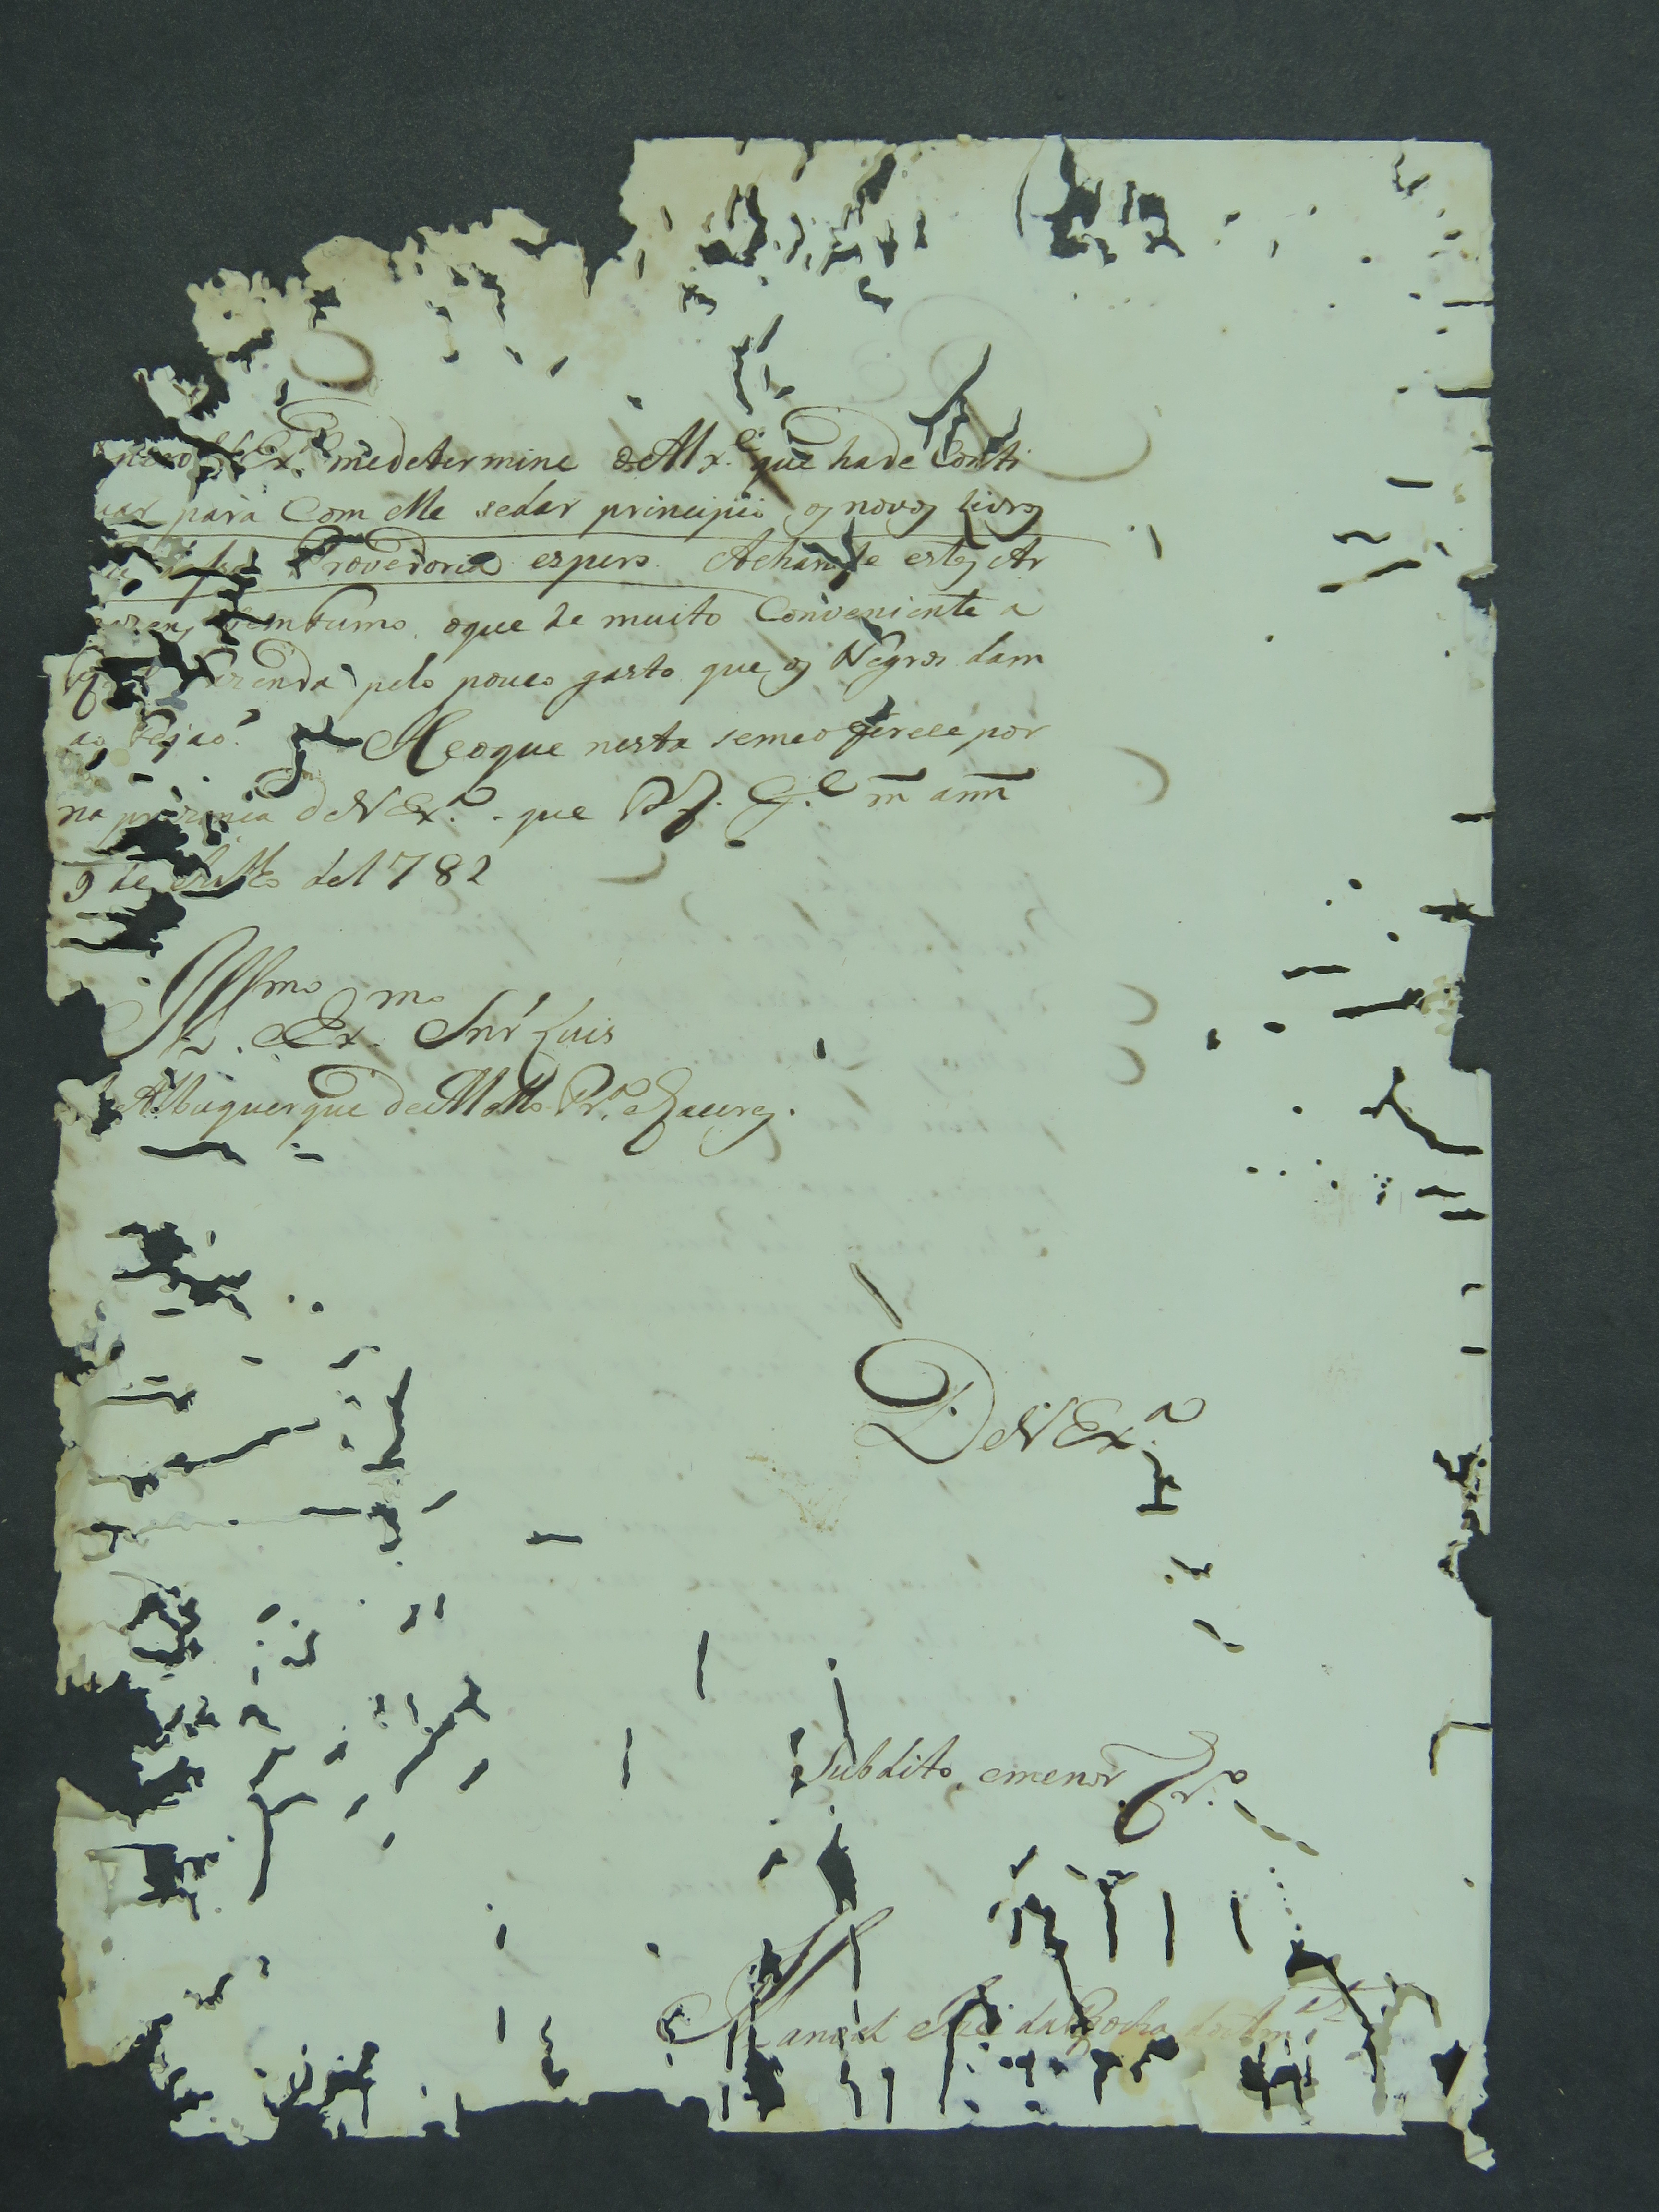 Ex.ª medetermine o Alx.e que hade Conti
uar para Com elle sedar principio os novos livros
Provedoria espero. Achamse estes Ar
oque he muito Conveniente a
pelo pouco gasto que os Negros dam
ao Fejaõ. He oque nesta semeoferece por
na prezencia deVEx.ª. que D.s G.e m ann
9 de del1782
Ill.mo Ex.mo Snr Luis
Albuquerque deMello Pr.ª eCaceres.
DeVEx.ª
Subdito, emenor
Manoel Joze daRocha